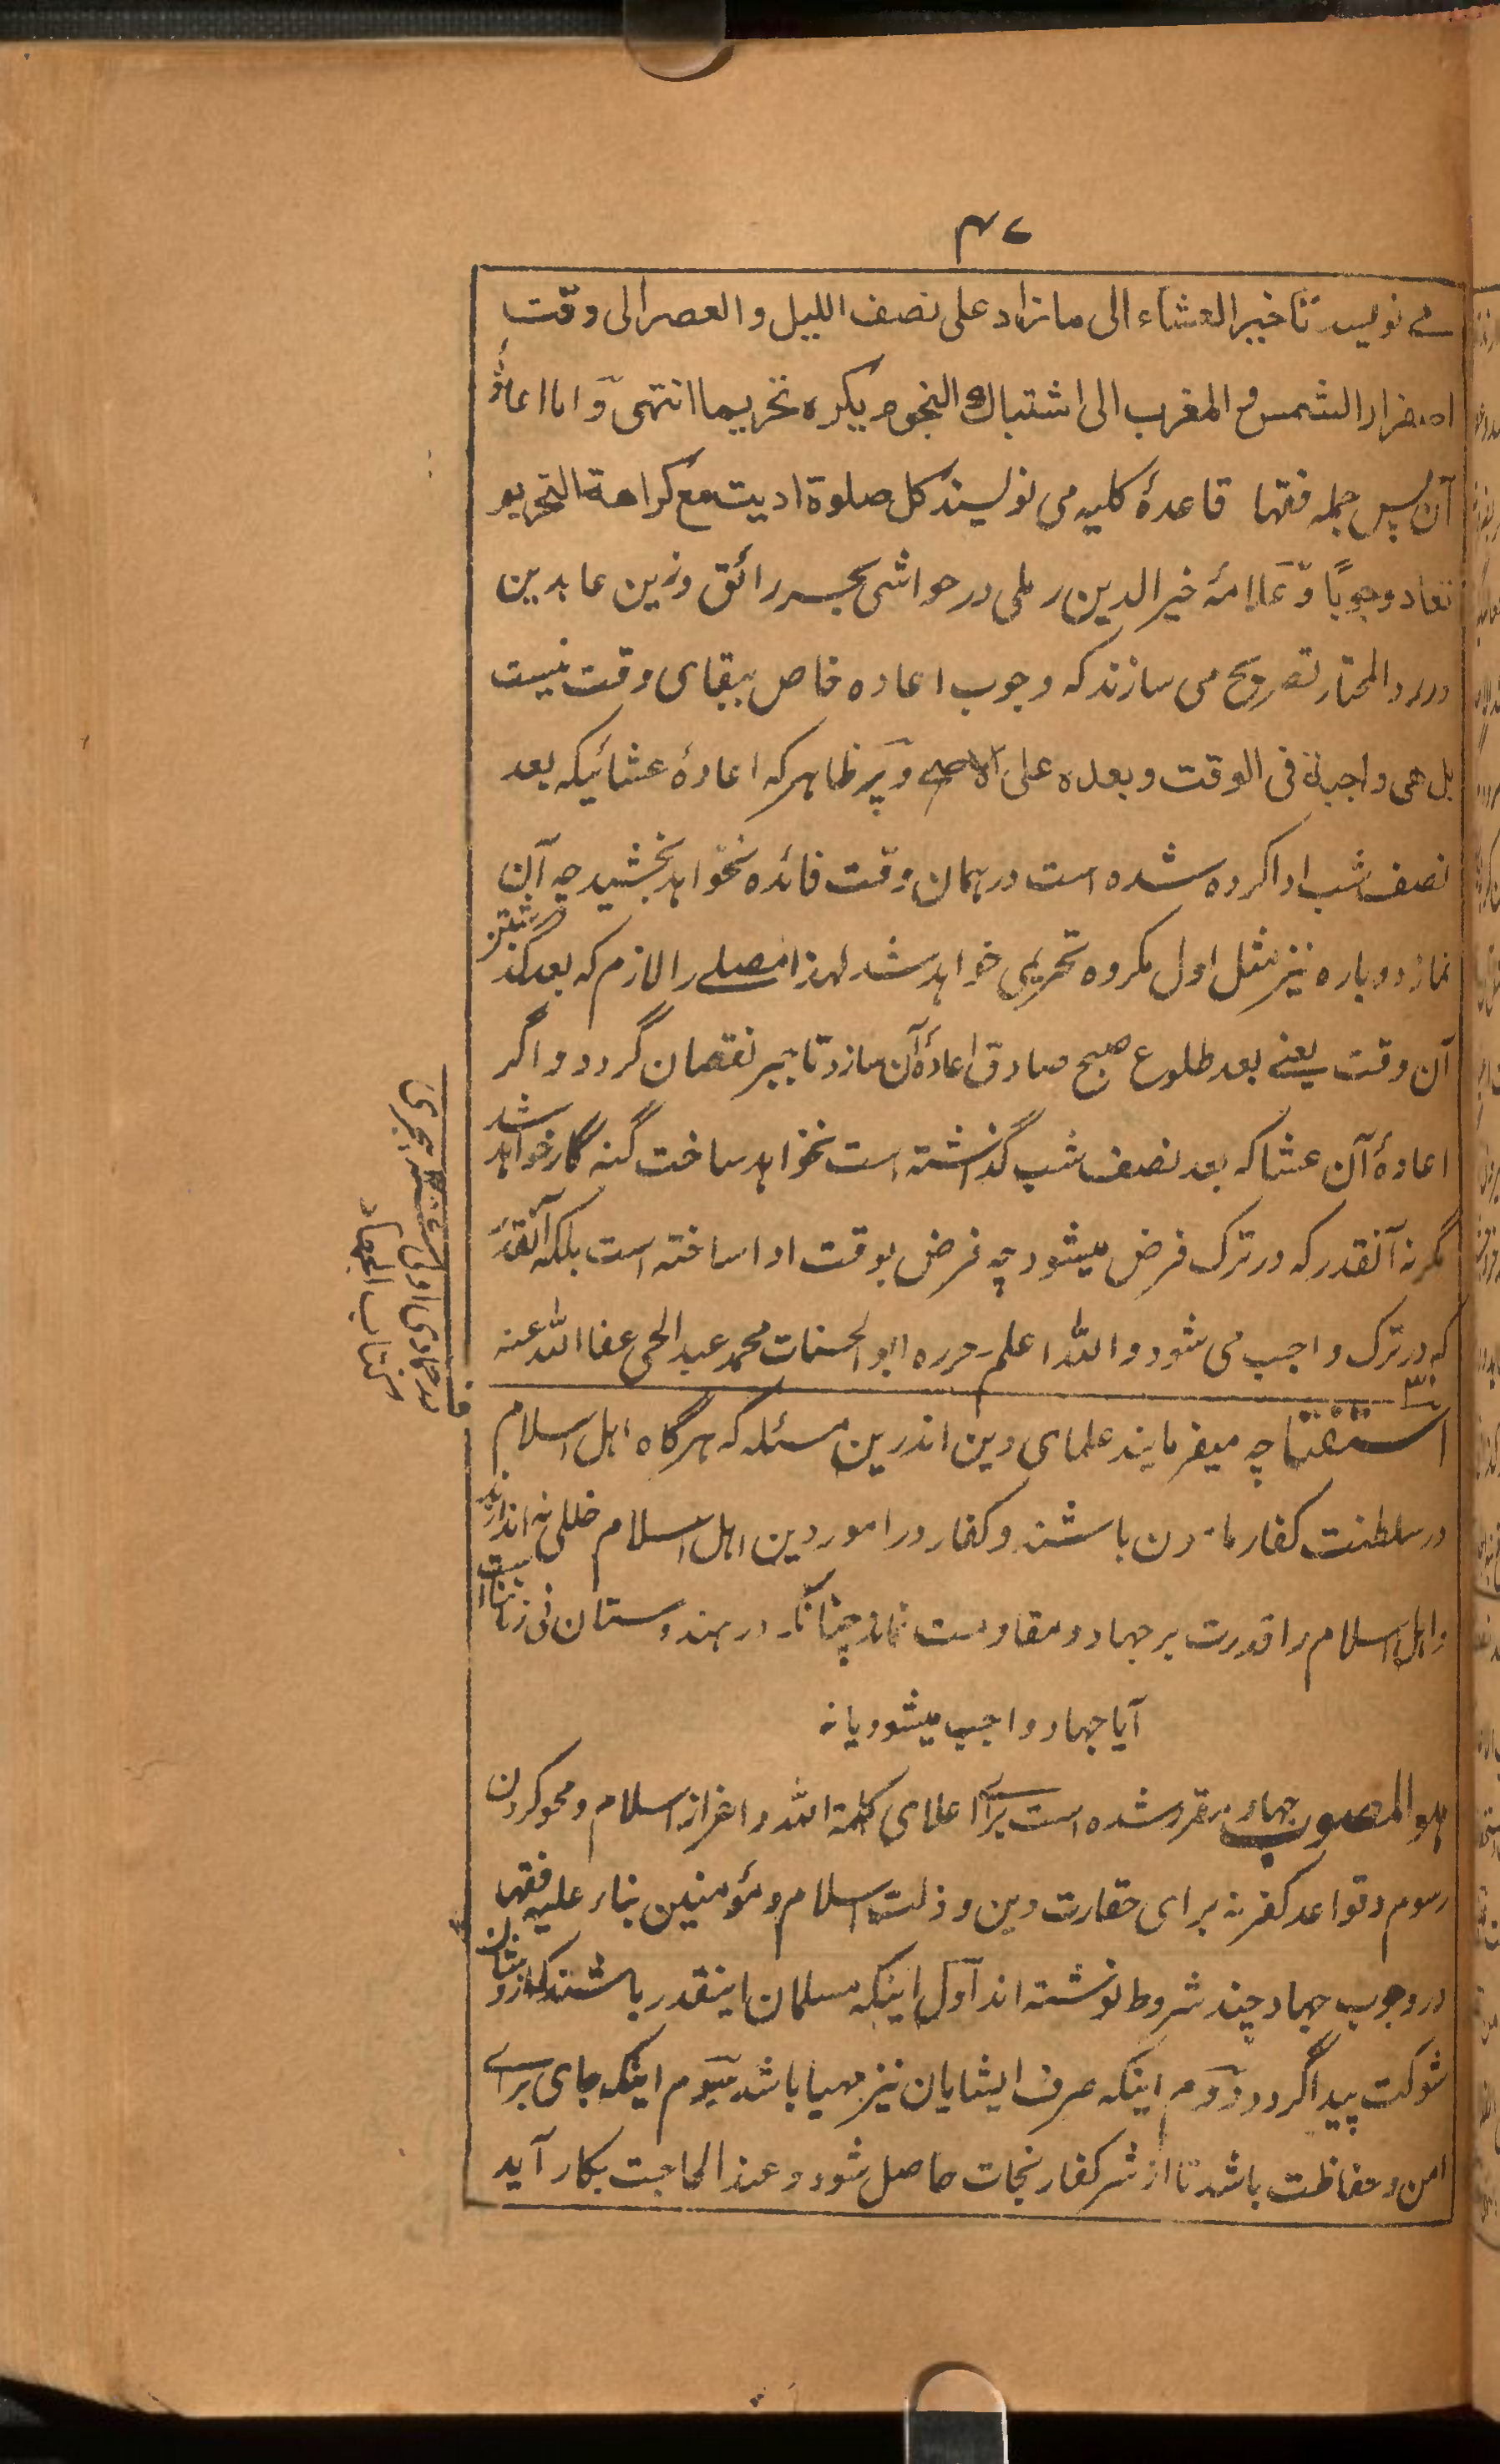 ۴۷
مے نویسد تاخیر العشاء الی مازاد علی نصف اللیل والعصر الی وقت
اصفرار الشمس والمغرب الی اشتباك النجوم یکرہ تحریما انتهی وَاما اعادۂ
آن پس جمله فقها قاعدۂ کلیه می نویسند کل صلوة ادیت مع کراهة التحریم
تعاد وجوبًا وَعلامۂ خیر الدین رملی در حواشی بحر رائق وزین عابدین
در رد المحتار تصریح می سازند که وجوب اعاده خاص ببقای وقت نیست
بل هی واجبة فی الوقت وبعده علی الاصح وَپر ظاهر که اعادۂ عشائیکه بعد
نصف شب ادا کرده شده است در همان وقت فائده نخواهد بخشید چه آن
نماز دوباره نیز مثل اول مکروه تحریمی خواهد شد لهذا مصلے را لازم که بعد گذشتن
آن وقت یعنے بعد طلوع صبح صادق اعادۂ آن سازد تا جبر نقصان گردد و اگر
اعادۂ آن عشا که بعد نصف شب گذشته است نخواهد ساخت گنه گار خواهد شد
مگر نه آنقدر که در ترک فرض میشود چه فرض بوقت ادا ساخته است بلکه آنقدر
که در ترک واجب می شود والله اعلم ـ حرره ابوالحسنات محمد عبد الحی عفا الله عنه
استفتا چه میفرمایند علمای دین اندرین مسئله که هرگاه اهل اسلام
در سلطنت کفار مامون باشند و کفار در امور دین اهل اسلام خللی نه اندازند
و اهل اسلام را قدرت بر جهاد و مقاومت نماند چنانکه در هندوستان فی زماننا است
آیا جهاد واجب میشود یا نه
هو المصوب جهاد مقرر شده است برای اعلای کلمة الله و اعزاز اسلام و محو کردن
رسوم و قواعد کفر نه برای حقارت دین و ذلت اسلام و مؤمنین بناء علیه فقها
در وجوب جهاد چند شروط نوشته اند اَول اینکه مسلمان اینقدر باشند که از وشان
شوکت پیدا گردد دوَم اینکه صرف ایشایان نیز مهیا باشد سیَوم اینکه جای برای
امن و حفاظت باشد تا از شر کفار نجات حاصل شود و عند الحاجت بکار آید
کتاب الجهاد